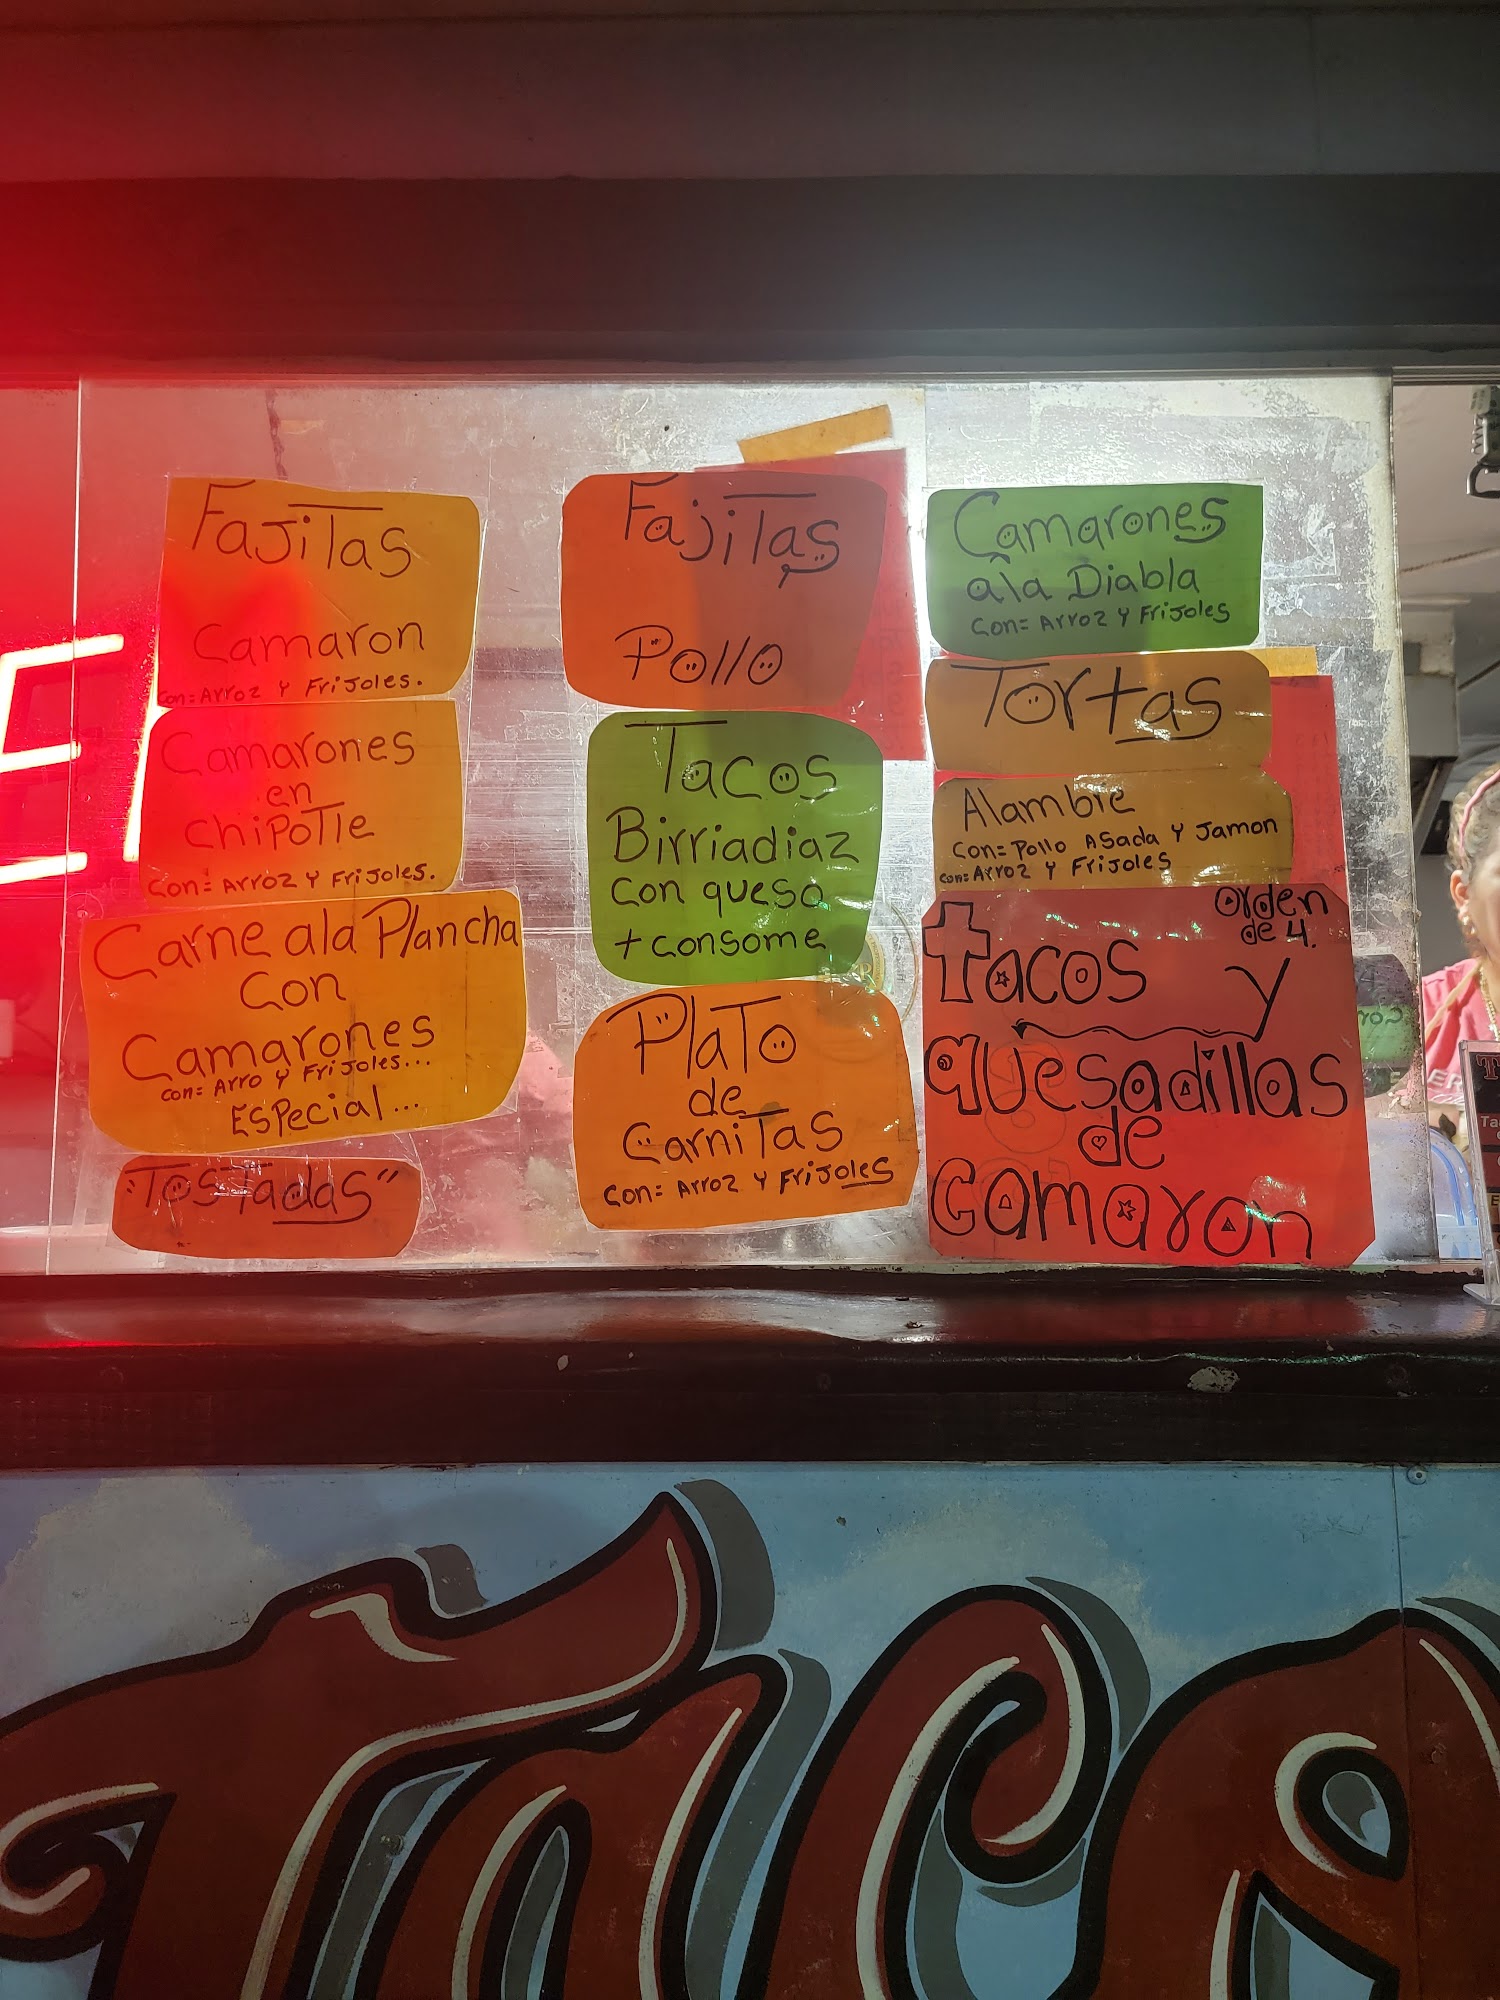 Fajitas
Camaron
Con= Arroz y Frijoles.
Camarones
en
chipotle
Con= Arroz y Frijoles.
Carne ala Plancha
Con
Camarones
Con= Arro y Frijoles...
Especial...
"Tostadas"
Fajitas
Pollo
Tacos
Birriadiaz
con queso
+ consome
Plato
de
Carnitas
Con= Arroz y Frijoles
Camarones
ala Diabla
Con= Arroz y Frijoles
Tortas
Alambre
Con= Pollo Asada y Jamon
Con= Arroz y Frijoles
Orden
de 4.
tacos y
quesadillas
de
camaron